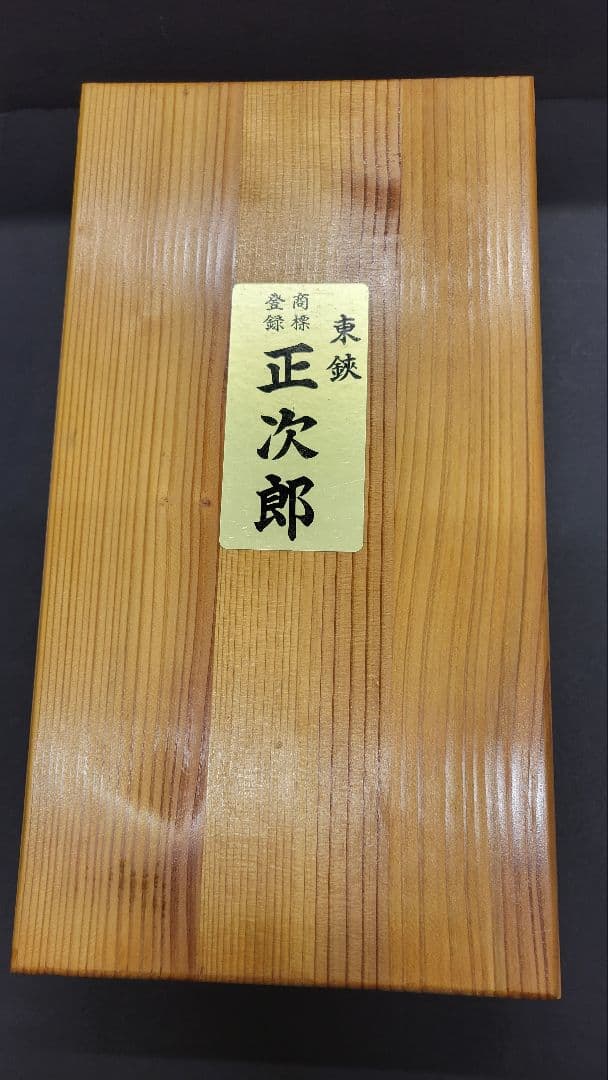 東鋏
商標
登録
正次郎